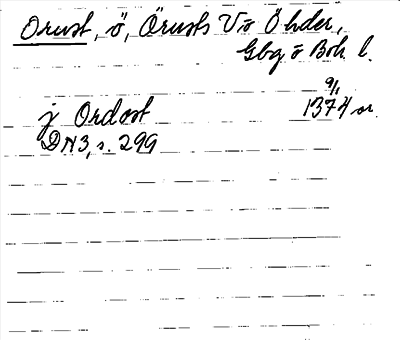 Orust, ö, Örusts V o Ö hder,
Gbg o Boh. l.
j Ordost 9/1 1374 or.
DN 3, s. 299